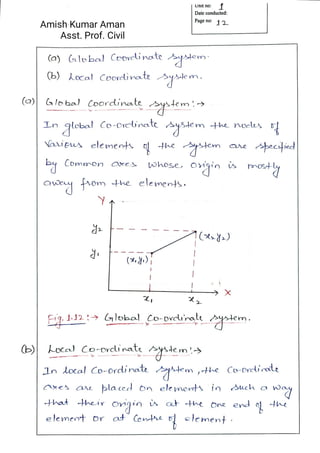 Unit no: 1
Date conducted:
Page no 12
Amish Kumar Aman
Asst. Prof. Civil
(a) Global Coordinate System.
(b) Local Coordinate System.
(a) Global Coordinate System :→
In global Co-ordinate System the nodes of
Various elements of the System are specified
by Common axes whose. Origin is mostly
away from the elements.
Y
y2
(x2,y2)
y1
(x1,y1)
x1 x2 X
Fig. 1.12 :→ Global Co-ordinate System.
(b) Local Co-ordinate System :→
In local Co-ordinate System, the Co-ordinate
axes are placed on elements in such a way
that their origin is at the one end of the
element or at Centre of element.